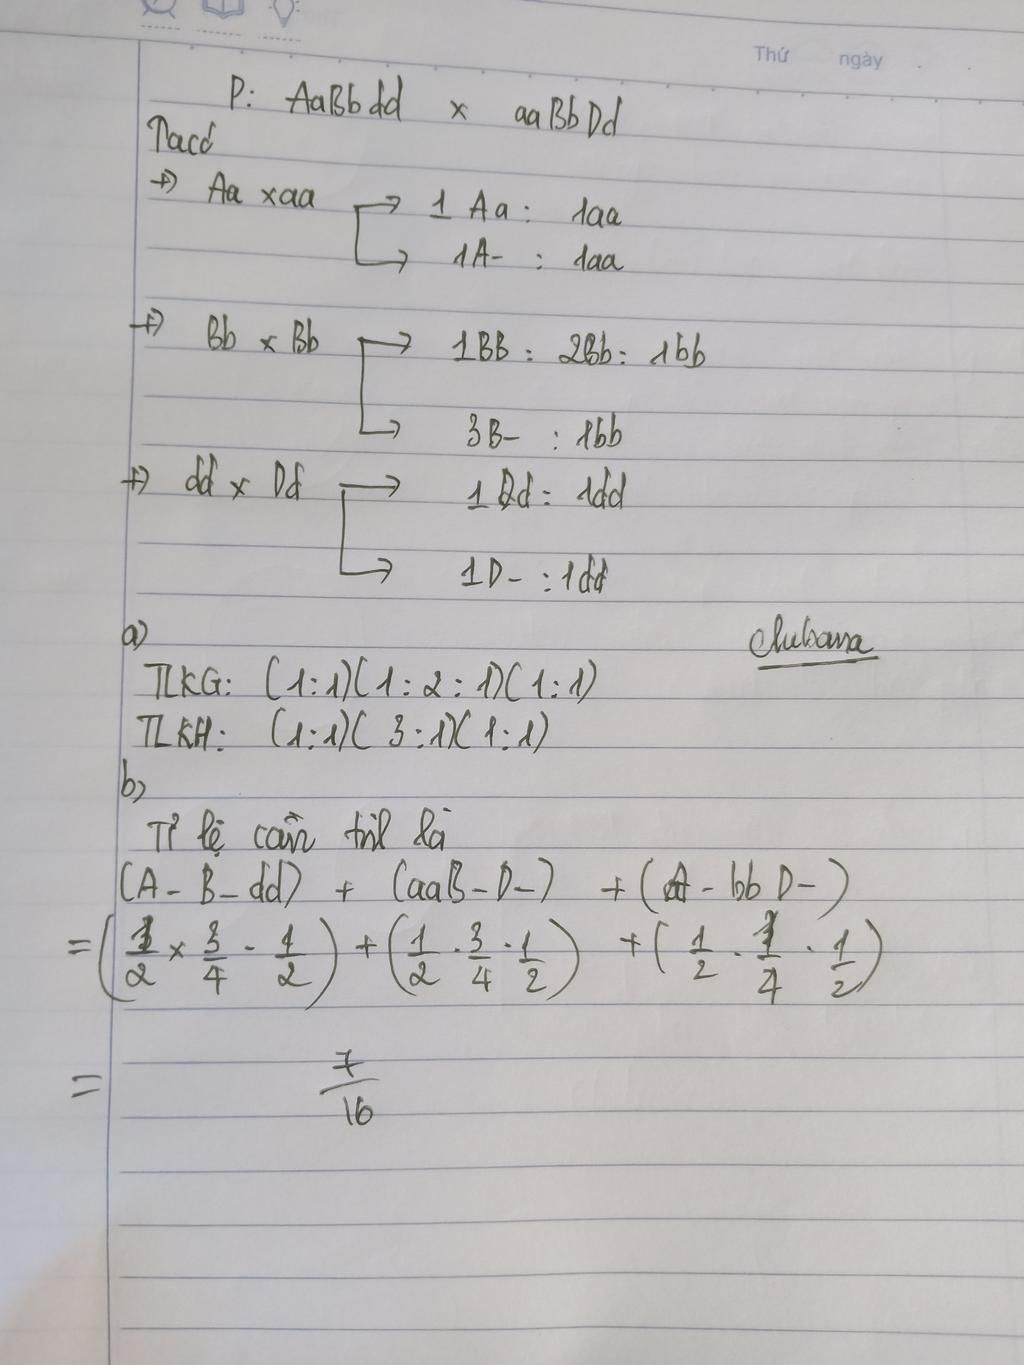 Thứ ngày
P: AaBbdd x aaBbDd
Ta có
+) Aa x aa → 1 Aa : 1aa
→ 1A- : 1aa
+) Bb x Bb → 1BB : 2Bb : 1bb
→ 3B- : 1bb
+) dd x Dd → 1 Dd : 1dd
→ 1D- : 1dd
a)
TLKG: (1:1)(1:2:1)(1:1)
TLKH: (1:1)(3:1)(1:1)
b)
Tỉ lệ cần tìl là
(A- B- dd) + (aaB-D-) + (A- bb D-)
= (1/2 x 3/4 - 1/2) + (1/2 . 3/4 . 1/2) + (1/2 . 1/4 . 1/2)
= 7/16